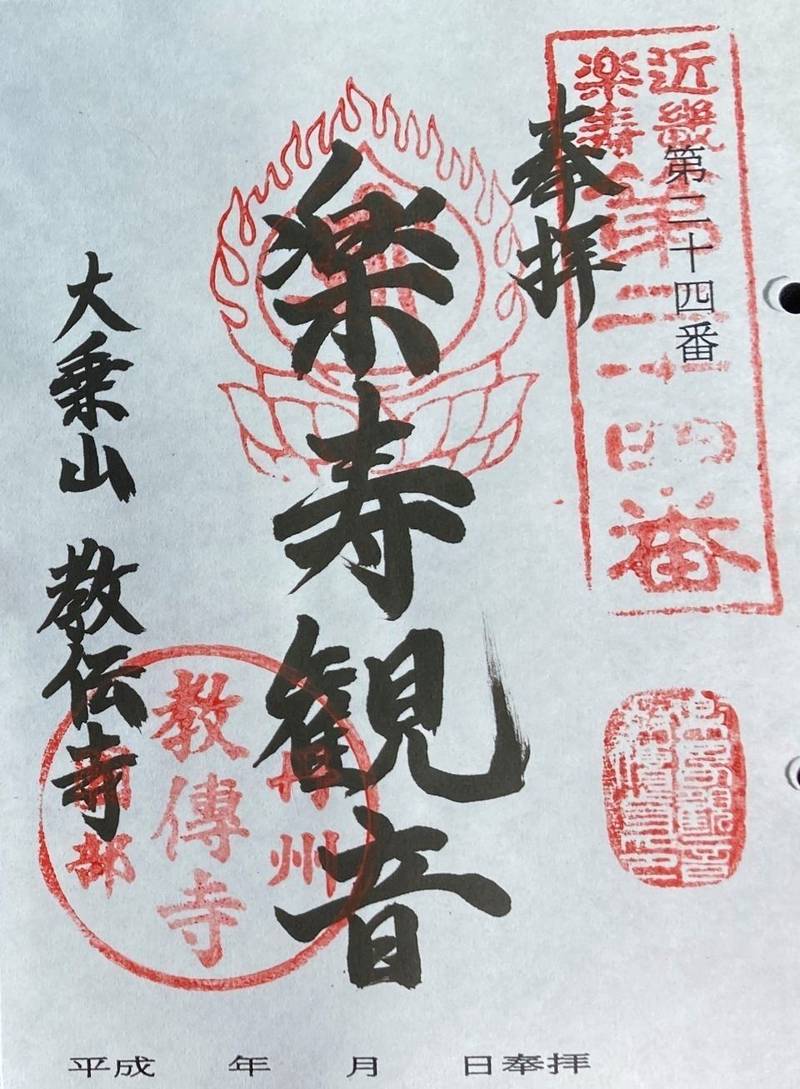 近畿
楽寿
第二十四番
第二十四番
奉拝
楽寿観音
大乗山 教伝寺
丹州
教傳寺
部
平成 年 月 日奉拝